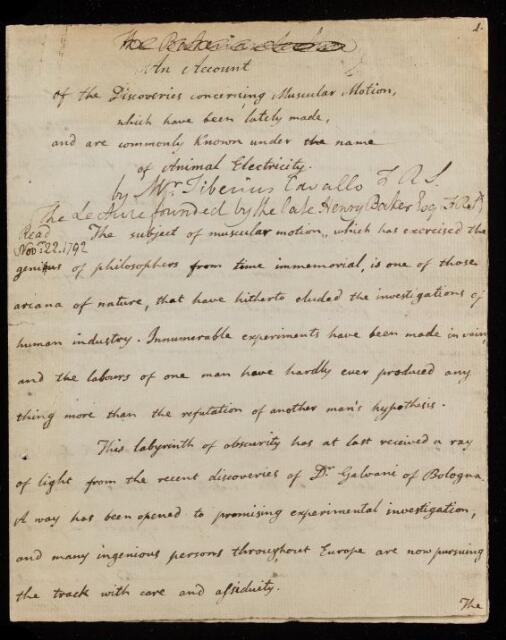 1.
The Bakerian Lecture
An Account
of the Discoveries concerning Muscular Motion,
which have been lately made,
and are commonly known under the name
of Animal Electricity.
by Mr. Tiberius Cavallo F.R.S.
The Lecture founded by the late Henry Baker Esq. F.R.S.
Read
Novr. 22. 1792
The subject of muscular motion, which has exercised the
genius of philosophers from time immemorial, is one of those
arcana of nature, that have hitherto eluded the investigations of
human industry. Innumerable experiments have been made in vain,
and the labours of one man have hardly ever produced any
thing more than the refutation of another man's hypothesis.
This labyrinth of obscurity has at last received a ray
of light from the recent discoveries of Dr. Galvani of Bologna.
A way has been opened to promising experimental investigation,
and many ingenious persons throughout Europe are now pursuing
the track with care and assiduity.
The